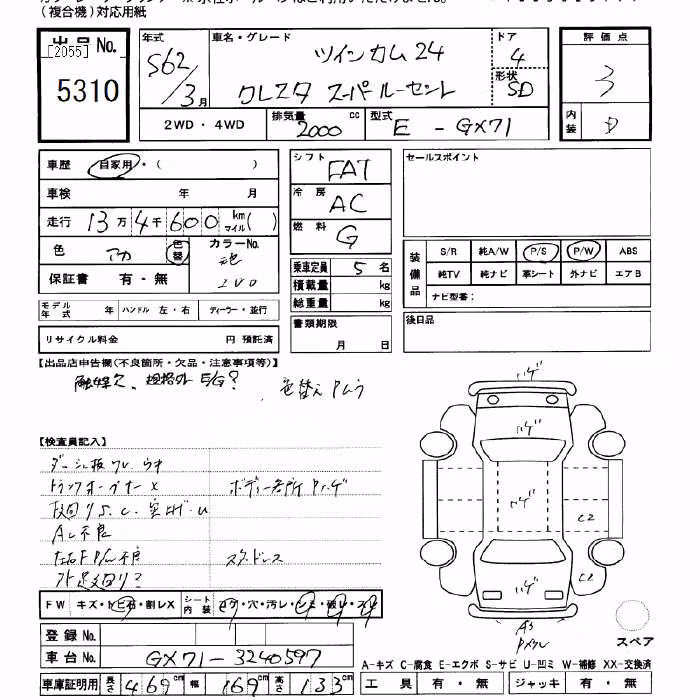 (複合機)対応用紙
出品No.
[2055]
5310
年式
S62/3月
車名・グレード
ツインカム24
クレスタ スーパールーセント
ドア
4
形状
SD
評価点
3
内装
D
2WD・4WD
排気量 2000 cc
型式 E - GX71
車歴 自家用・( )
車検 年 月
走行 13万4千600 km マイル( )
色 アカ 色替
カラーNo.
元色
2V0
保証書 有・無
モデル年式 年 ハンドル 左・右 ディーラー・並行
リサイクル料金 円 預託済
シフト FAT
冷房 AC
燃料 G
乗車定員 5名
積載量 kg
総重量 kg
書類期限
月 日
セールスポイント
装備品
S/R 純A/W P/S P/W ABS
純TV 純ナビ 革シート 外ナビ エアB
ナビ型番:
後日品
【出品店申告欄(不良箇所・欠品・注意事項等)】
触媒欠、規格外E/G? 色替え Pムラ
【検査員記入】
ダッシュ板ワレ ウキ
トランクオープナーX ボディー各所Pハゲ
下回りS.C.突上げU
AC不良
左右F P/W不良 スタッドレス
外 足回り?
ハゲ
ハゲ
ハゲ
ハゲ
C2
C2
A3
Pメクレ
スペア
FW キズ・トビ石・割レX シート内装 コゲ・穴・汚レ・シミ・破レ・スレ
登録No.
車台No. GX71-3240597
車庫証明用 長さ 469cm 幅 169cm 高さ 133cm
A-キズ C-腐食 E-エクボ S-サビ U-凹ミ W-補修 XX-交換済
工具 有・無 ジャッキ 有・無